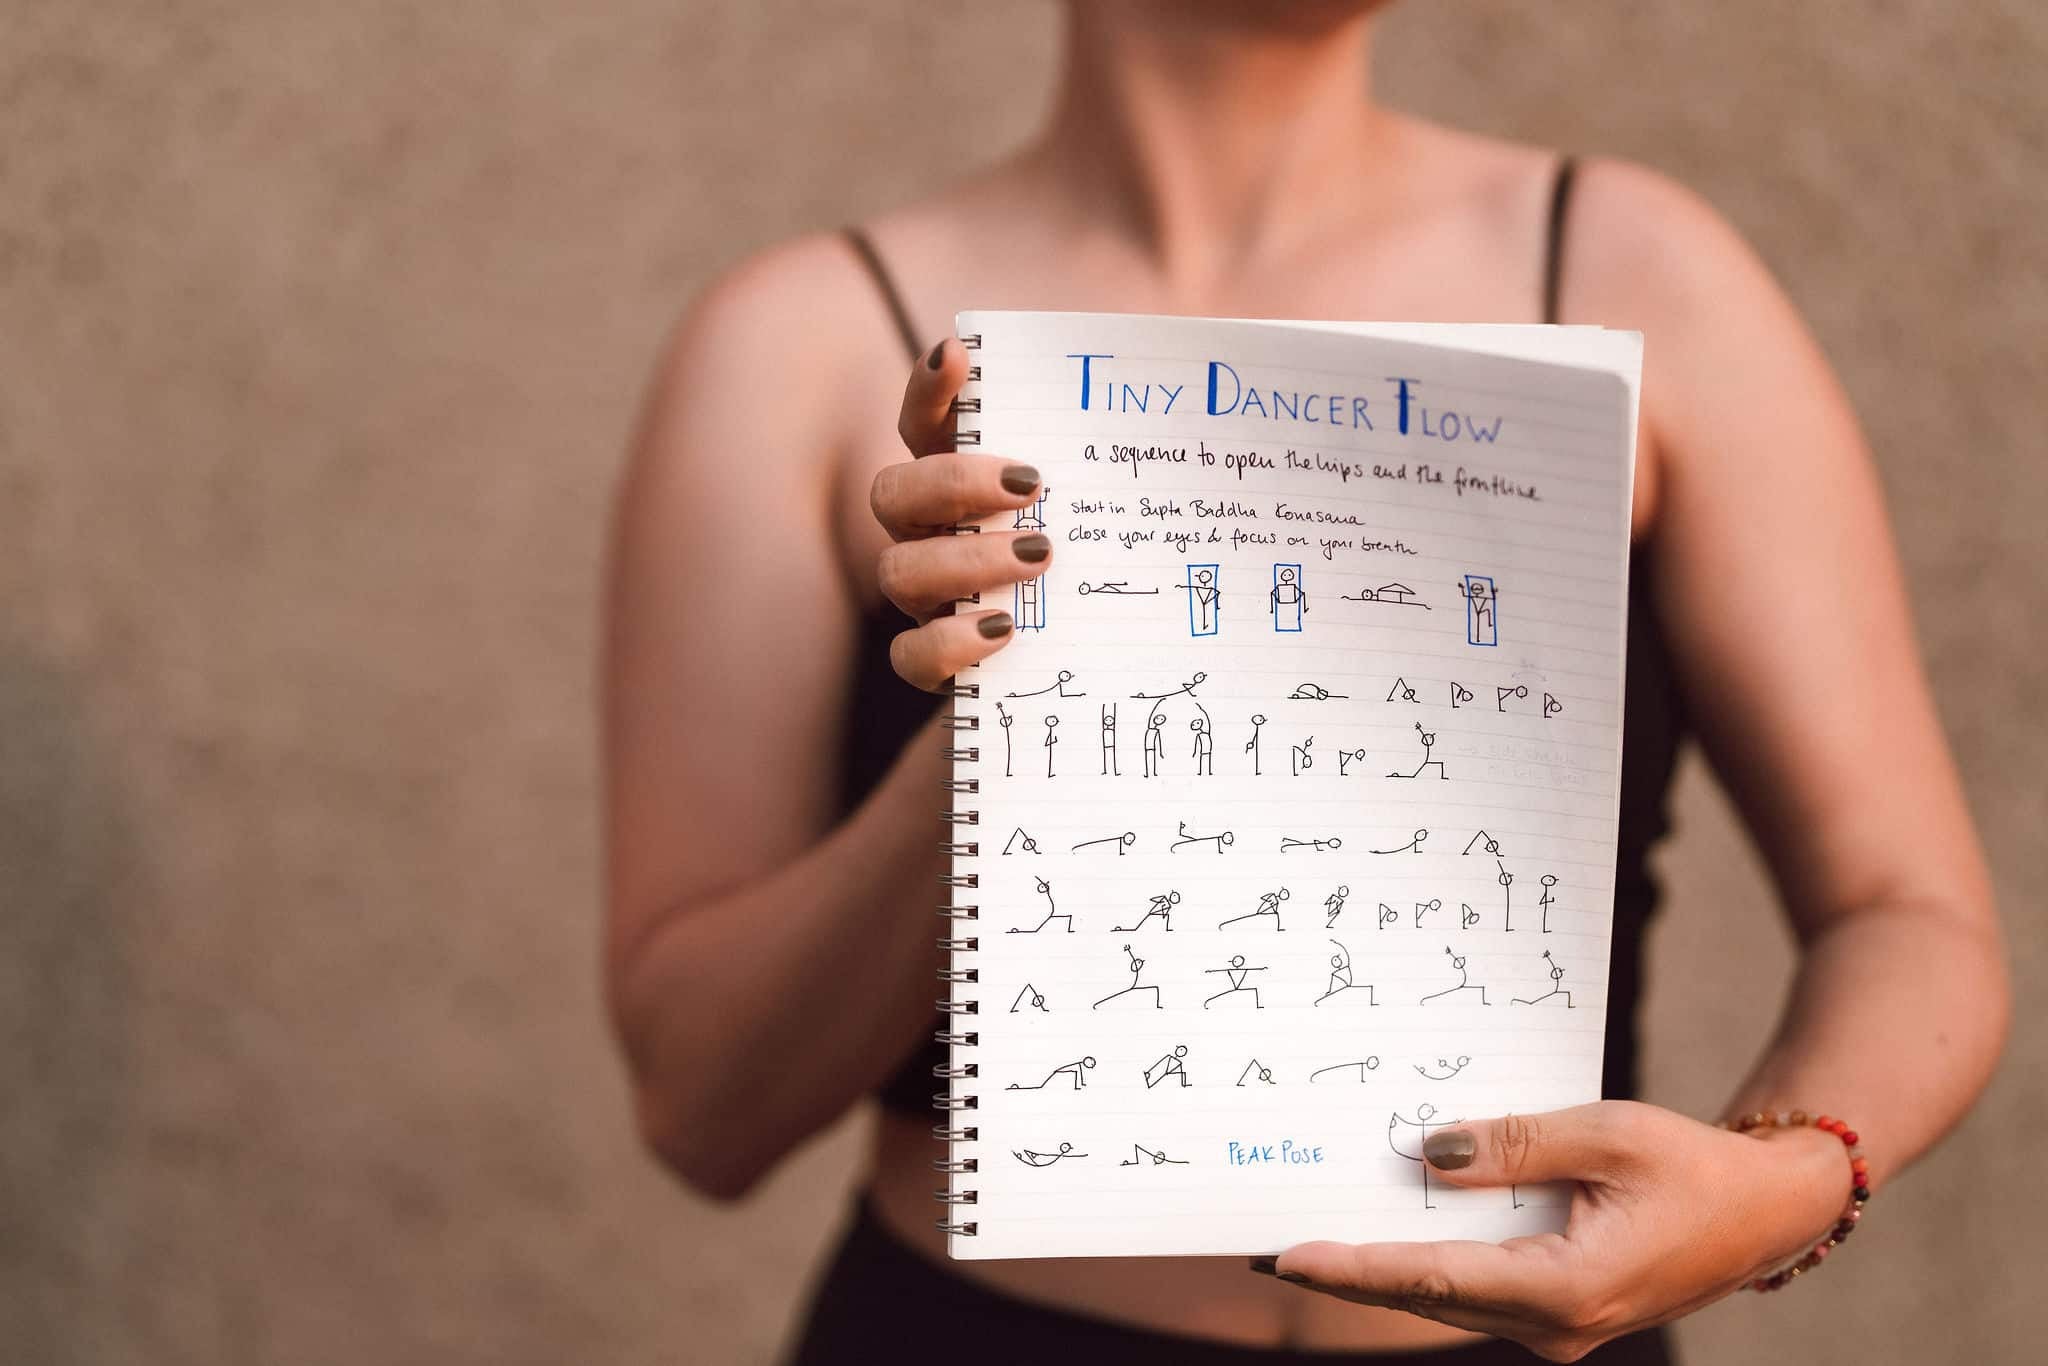 TINY DANCER FLOW
a sequence to open the hips and the frontline
start in Supta Baddha Konasana
close your eyes & focus on your breath
side stretch
PEAK POSE